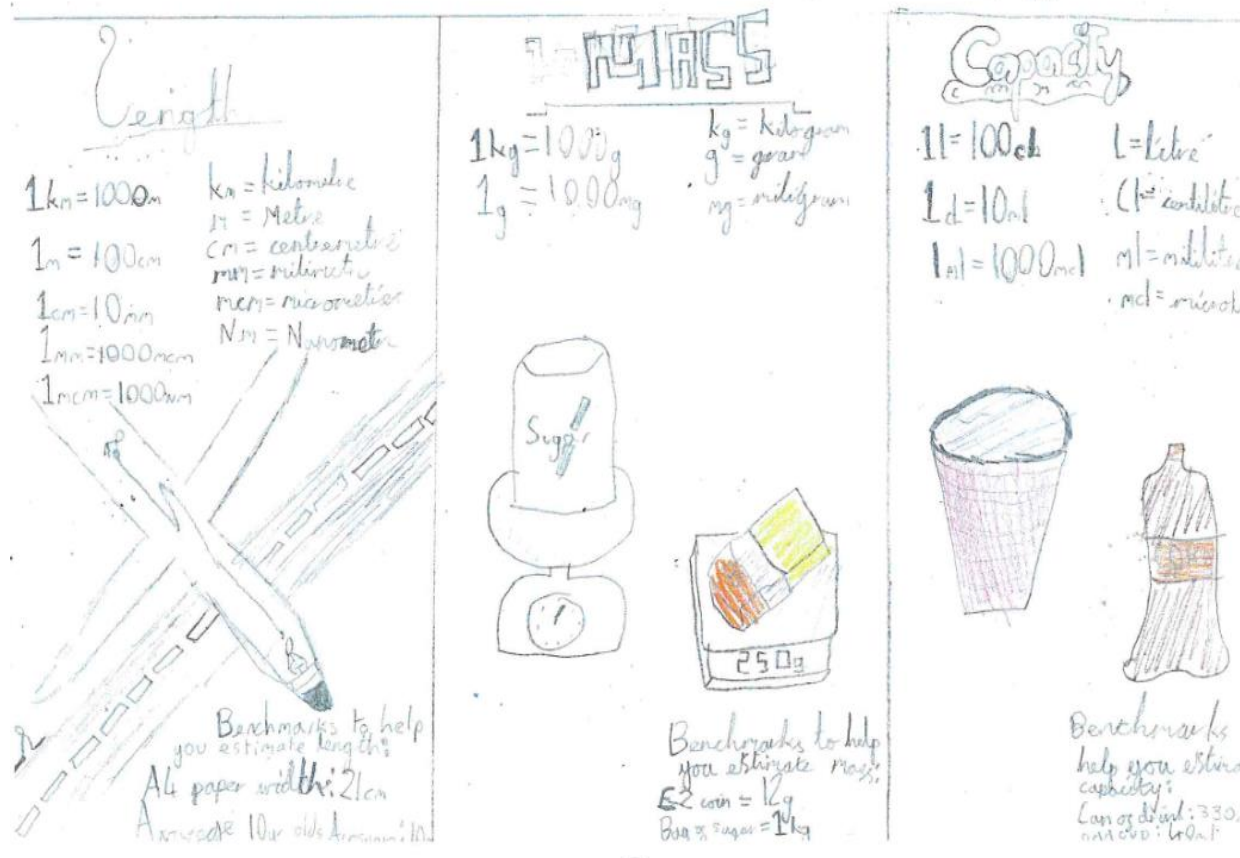 Length
1km = 1000m
1m = 100cm
1cm = 10mm
1mm = 1000mcm
1mcm = 1000Nm
km = kilometre
m = Metre
cm = centremetre
mm = milimetre
mcm = micrometier
Nm = Nanometer
Benchmarks to help
you estimate length:
A4 paper width: 21cm
10yr olds
MASS
1kg = 1000g
1g = 1000mg
kg = kilogram
g = gram
mg = miligram
Sugar
250g
Benchmarks to help
you estimate mass:
£2 coin = 12g
Bag of sugar = 1kg
Capacity
1l = 100cl
1cl = 10ml
1ml = 1000mcl
L = Litre
Cl = centilitre
ml = mililiter
mcl = microl
Benchmarks
help you estima
capacity:
Can of drink: 330